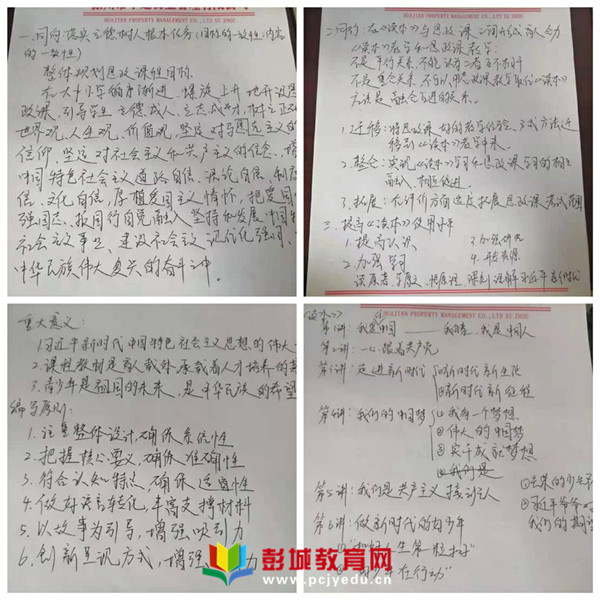 HUALIAN PROPERTY MANAGEMENT CO., LTD XU ZHOU
一、同向:落实立德树人根本任务(目标的一致性;内容
的一致性)
整体规划思政课程目标
在大中小学循序渐进、螺旋上升地开设思
政课,引导学生立德成人、立志成才,树立正确
世界观、人生观、价值观,坚定对马克思主义的
信仰,坚定对社会主义和共产主义的信念,增
中国特色社会主义道路自信、理论自信、制度
信、文化自信,厚植爱国主义情怀,把爱国
强国志、报国行自觉融入坚持和发展中国特
社会主义事业、建设社会主义现代化强国、
中华民族伟大复兴的奋斗之中。
二、同行:在《读本》与思政课之间形成育人合力
《读本》教学和思政课教学:
不是平行关系,不能认为二者互不相干
不是包含关系,不可以用思政课教学取代《读本》
应该是融合互进的关系。
1.迁移:将思政课好的教学经验、方式方法迁
移到《读本》教学中来。
2.整合:实现《读本》学习和思政课学习的相互
融入、相互促进。
3.拓展:在评价方面适度拓展思政课考试范围
三、提高《读本》使用水平
1.提高认识 3.加强研究
2.加强学习 4.开发资源
读原著、学原文、悟原理
HUALIAN PROPERTY MANAGEMENT CO., LTD XU ZHOU
重大意义:
1.习近平新时代中国特色社会主义思想的伟大
2.课程教材是育人载体,承载着人才培养的
3.青少年是祖国的未来,是中华民族的希望
编写原则:
1.注重整体设计,确保系统性
2.把握核心要义,确保准确性
3.符合认知特点,确保适宜性
4.做好语言转化,丰富支撑材料
5.以故事为引导,增强吸引力
6.创新呈现方式,增强 力
HUALIAN PROPERTY MANAGEMENT CO., LTD XU ZHOU
读本》
第1讲:我爱中国——我骄傲,我是中国人
第2讲:一心跟着共产党
第3讲:走进新时代 ①新时代新生活
②新时代新征程
第4讲:我们的中国梦 ①我有一个梦想
②伟大的中国梦
③实干成就梦想
第5讲:我们是共产主义接班人
第6讲:做新时代的好少年
①"扣好人生第一粒扣子"
在行动"
彭城教育网
www.pcjyedu.cn